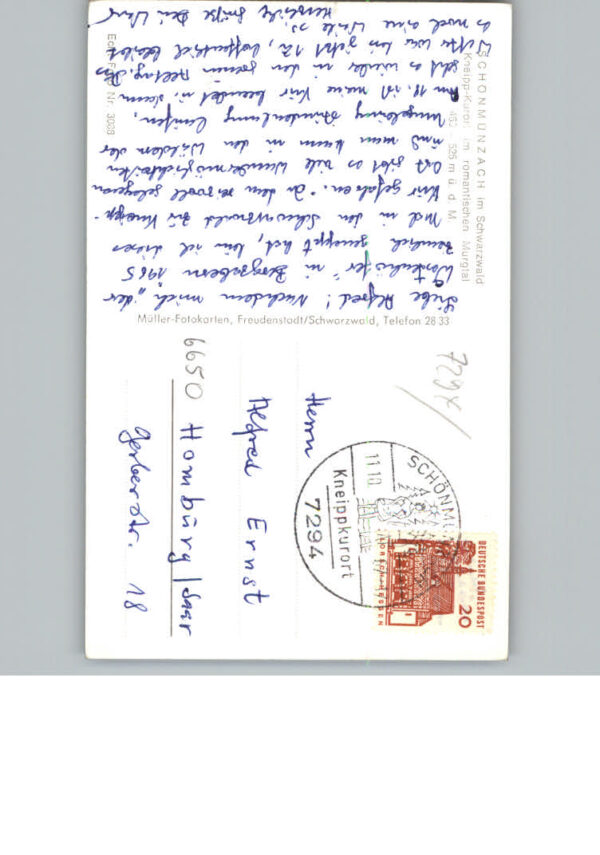 SCHÖNMÜNZACH im Schwarzwald
Kneipp-Kurort im romantischen Murgtal
460 - 525 m ü. d. M.
Liebe Alfred! Nachdem mich „der
in Bergzabern 1965
ziemlich hat, bin ich dieses
Mal in den Schwarzwald zur Kneipp-
Kur gefahren. In dem reizvoll gelegenen
Ort gibt es viele Wandermöglichkeiten
und man kann in den Wäldern der
Umgebung stundenlang laufen.
Am 18. ist meine Kur beendet u. dann
geht es wieder in den grauen Alltag. Das
Wetter war bis jetzt hoffentlich bleibt
es noch eine Weile so.
Herzliche Grüße Dein
Echt Foto Nr. 3083
Müller-Fotokarten, Freudenstadt/Schwarzwald, Telefon 28 33
7294
Herrn
Alfred Ernst
6650 Homburg/Saar
Gerberstr. 18
SCHÖNMÜN
11.10
Kneippkurort
7294
DEUTSCHE BUNDESPOST
20
LORSCH/HESSEN